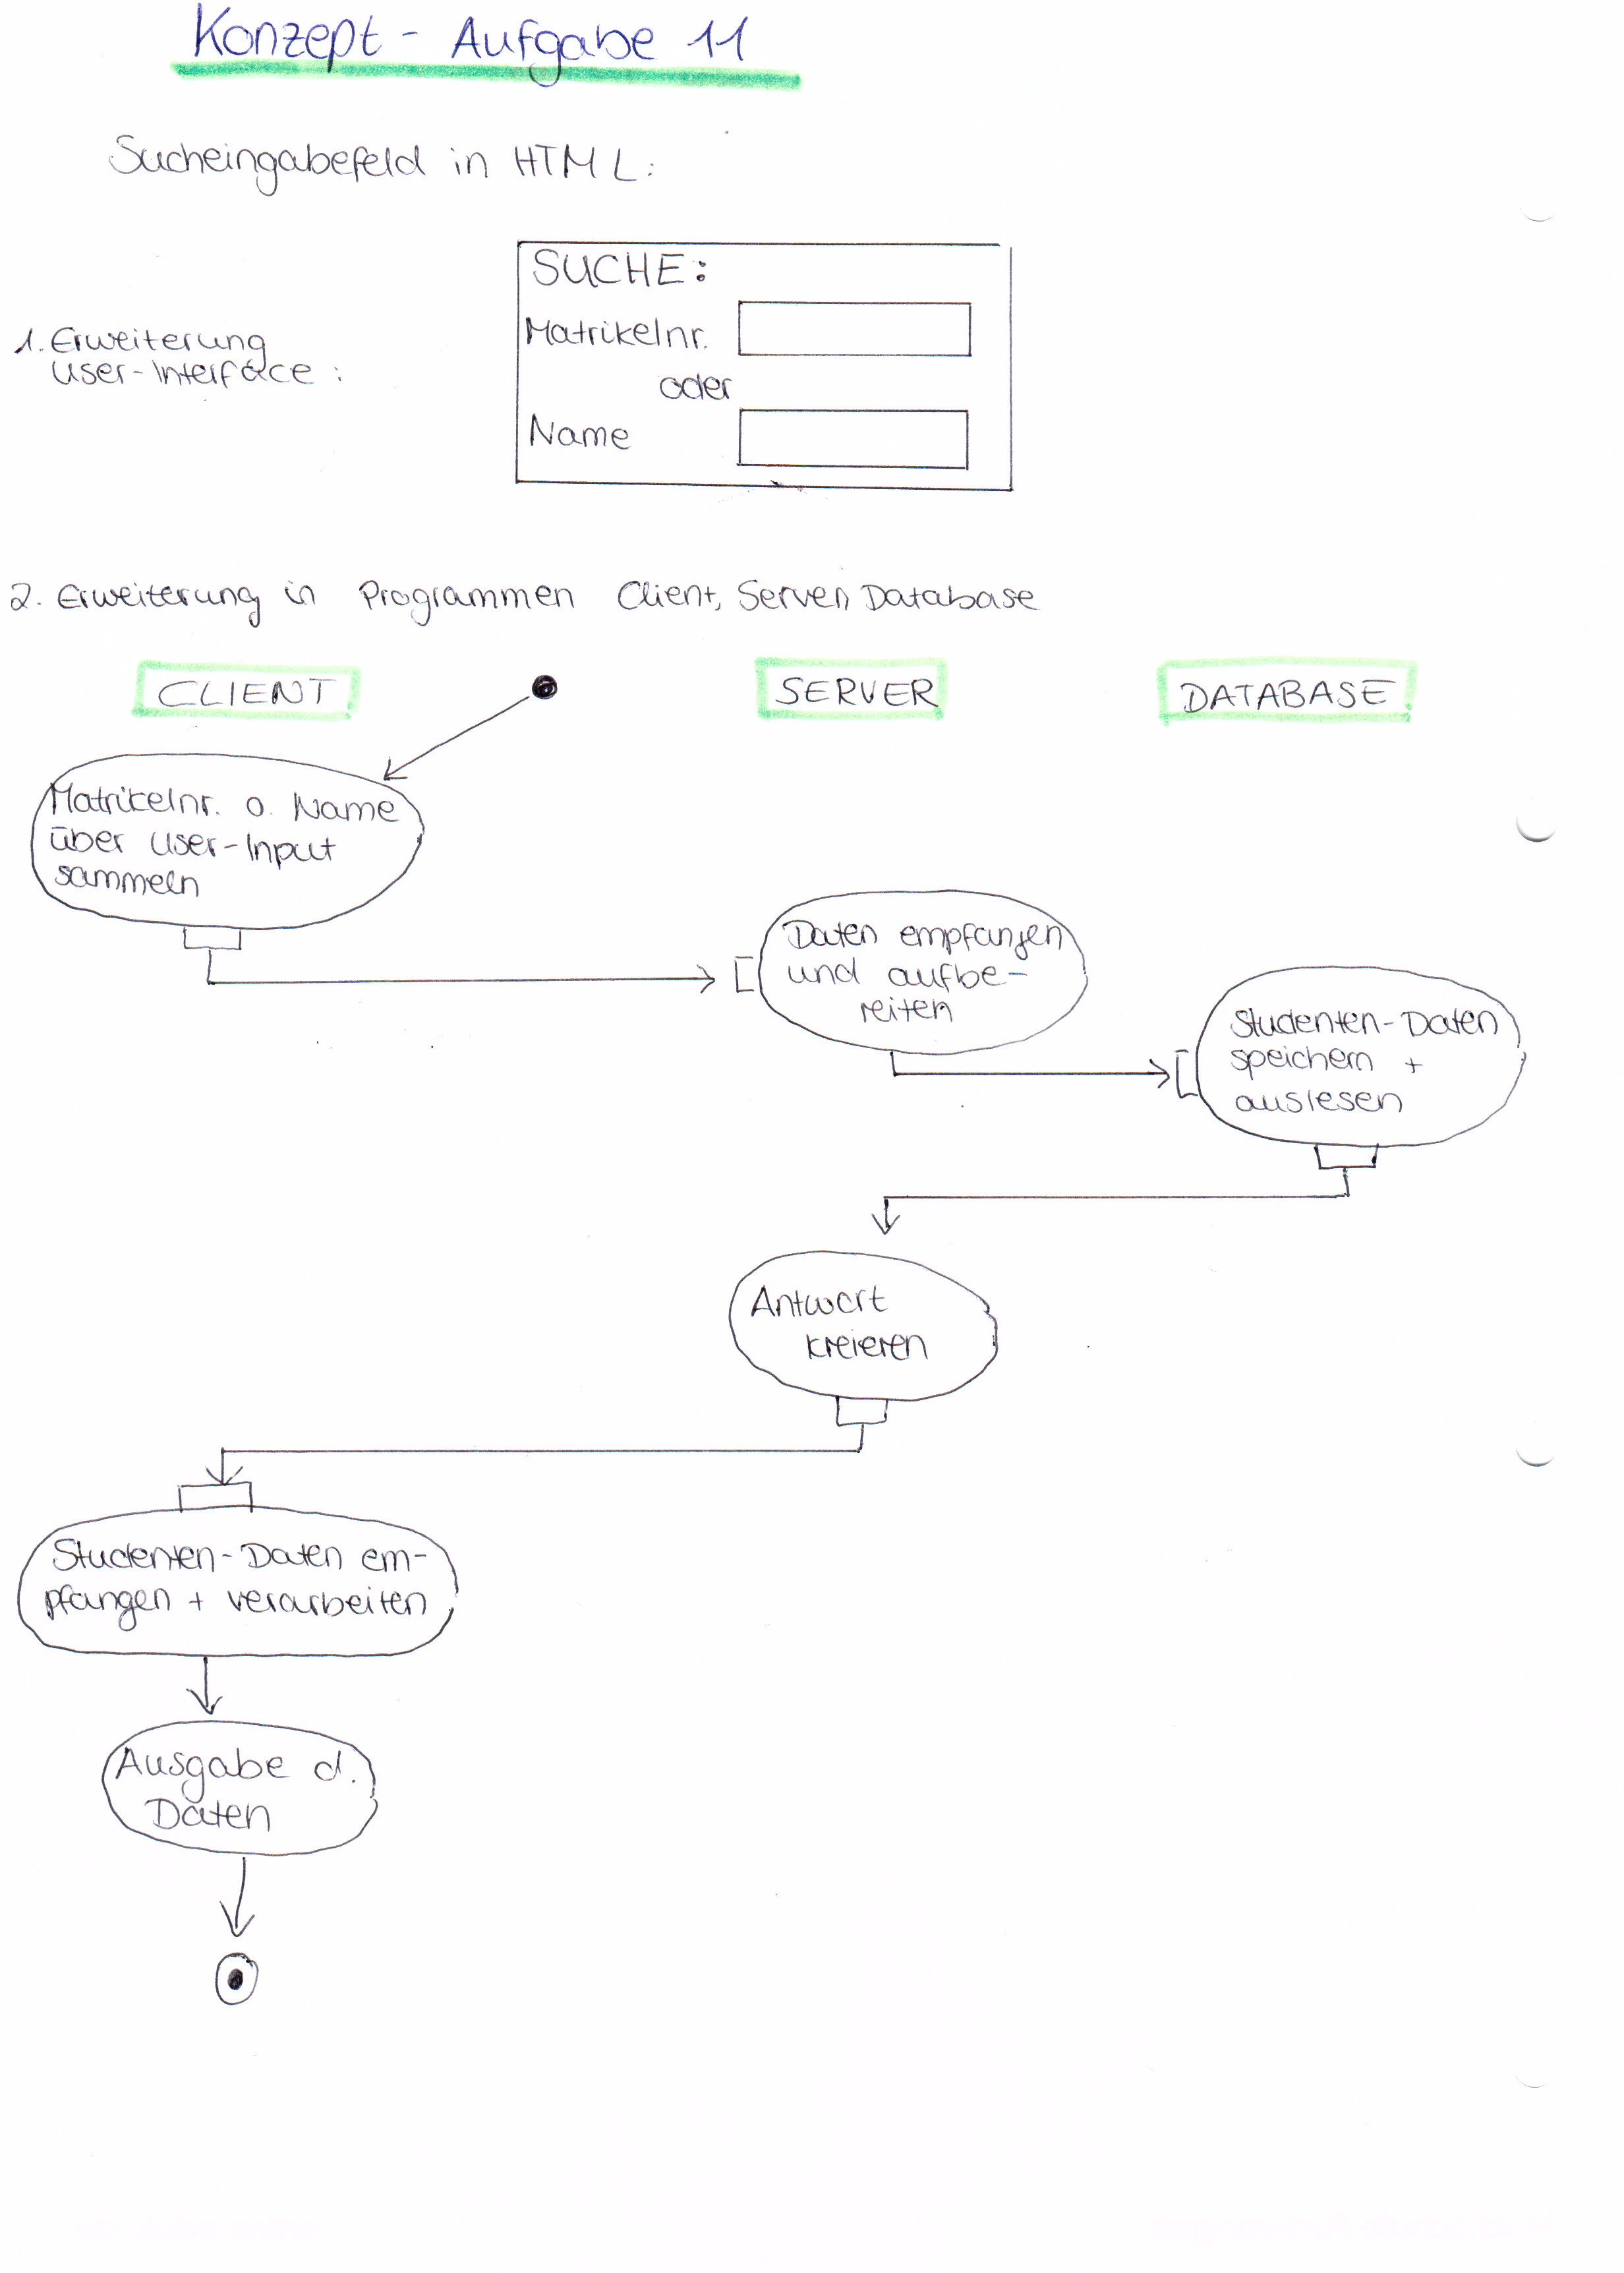 Konzept - Aufgabe 11
Sucheingabefeld in HTML:
SUCHE:
Matrikelnr.
oder
Name
1. Erweiterung
User-Interface:
2. Erweiterung in Programmen Client, Server, Database
CLIENT
SERVER
DATABASE
Matrikelnr. o. Name
über User-Input
sammeln
Daten empfangen
und aufbe-
reiten
Studenten-Daten
speichern +
auslesen
Antwort
kreieren
Studenten-Daten em-
pfangen + verarbeiten
Ausgabe d.
Daten